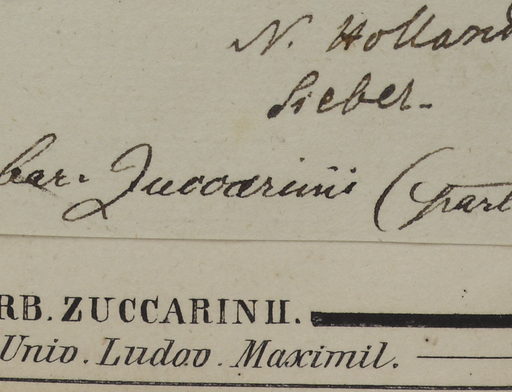 N. Holland
Sieber.
bar. Zuccarinii (part
RB. ZUCCARINII.
Univ. Ludov. Maximil.